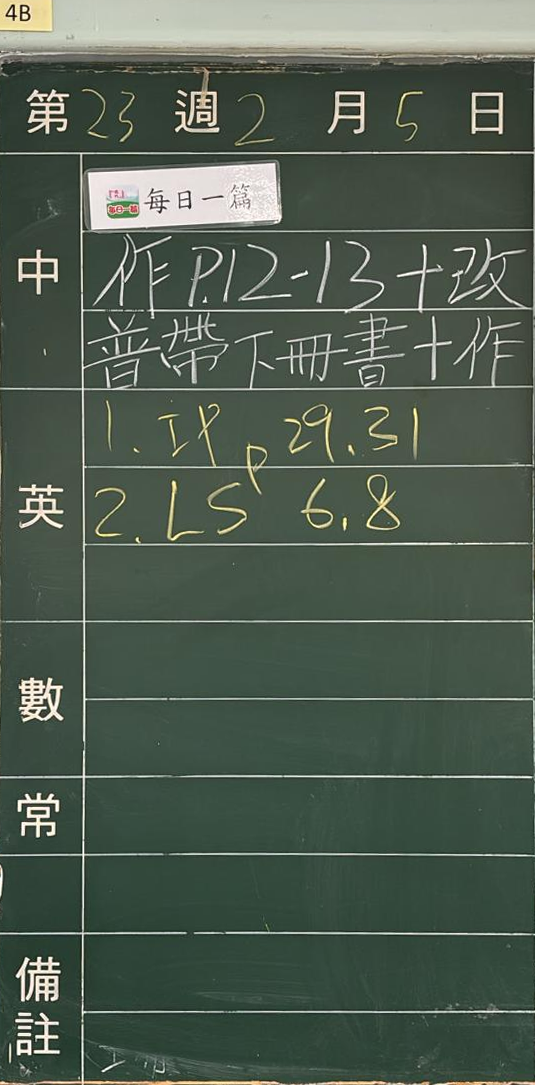 4B
第23週2月5日
每日一篇 每日一篇
中
作P.12-13+改
普帶下冊書+作
英
1. IP P 29.31
2. LS 6.8
數
常
備註